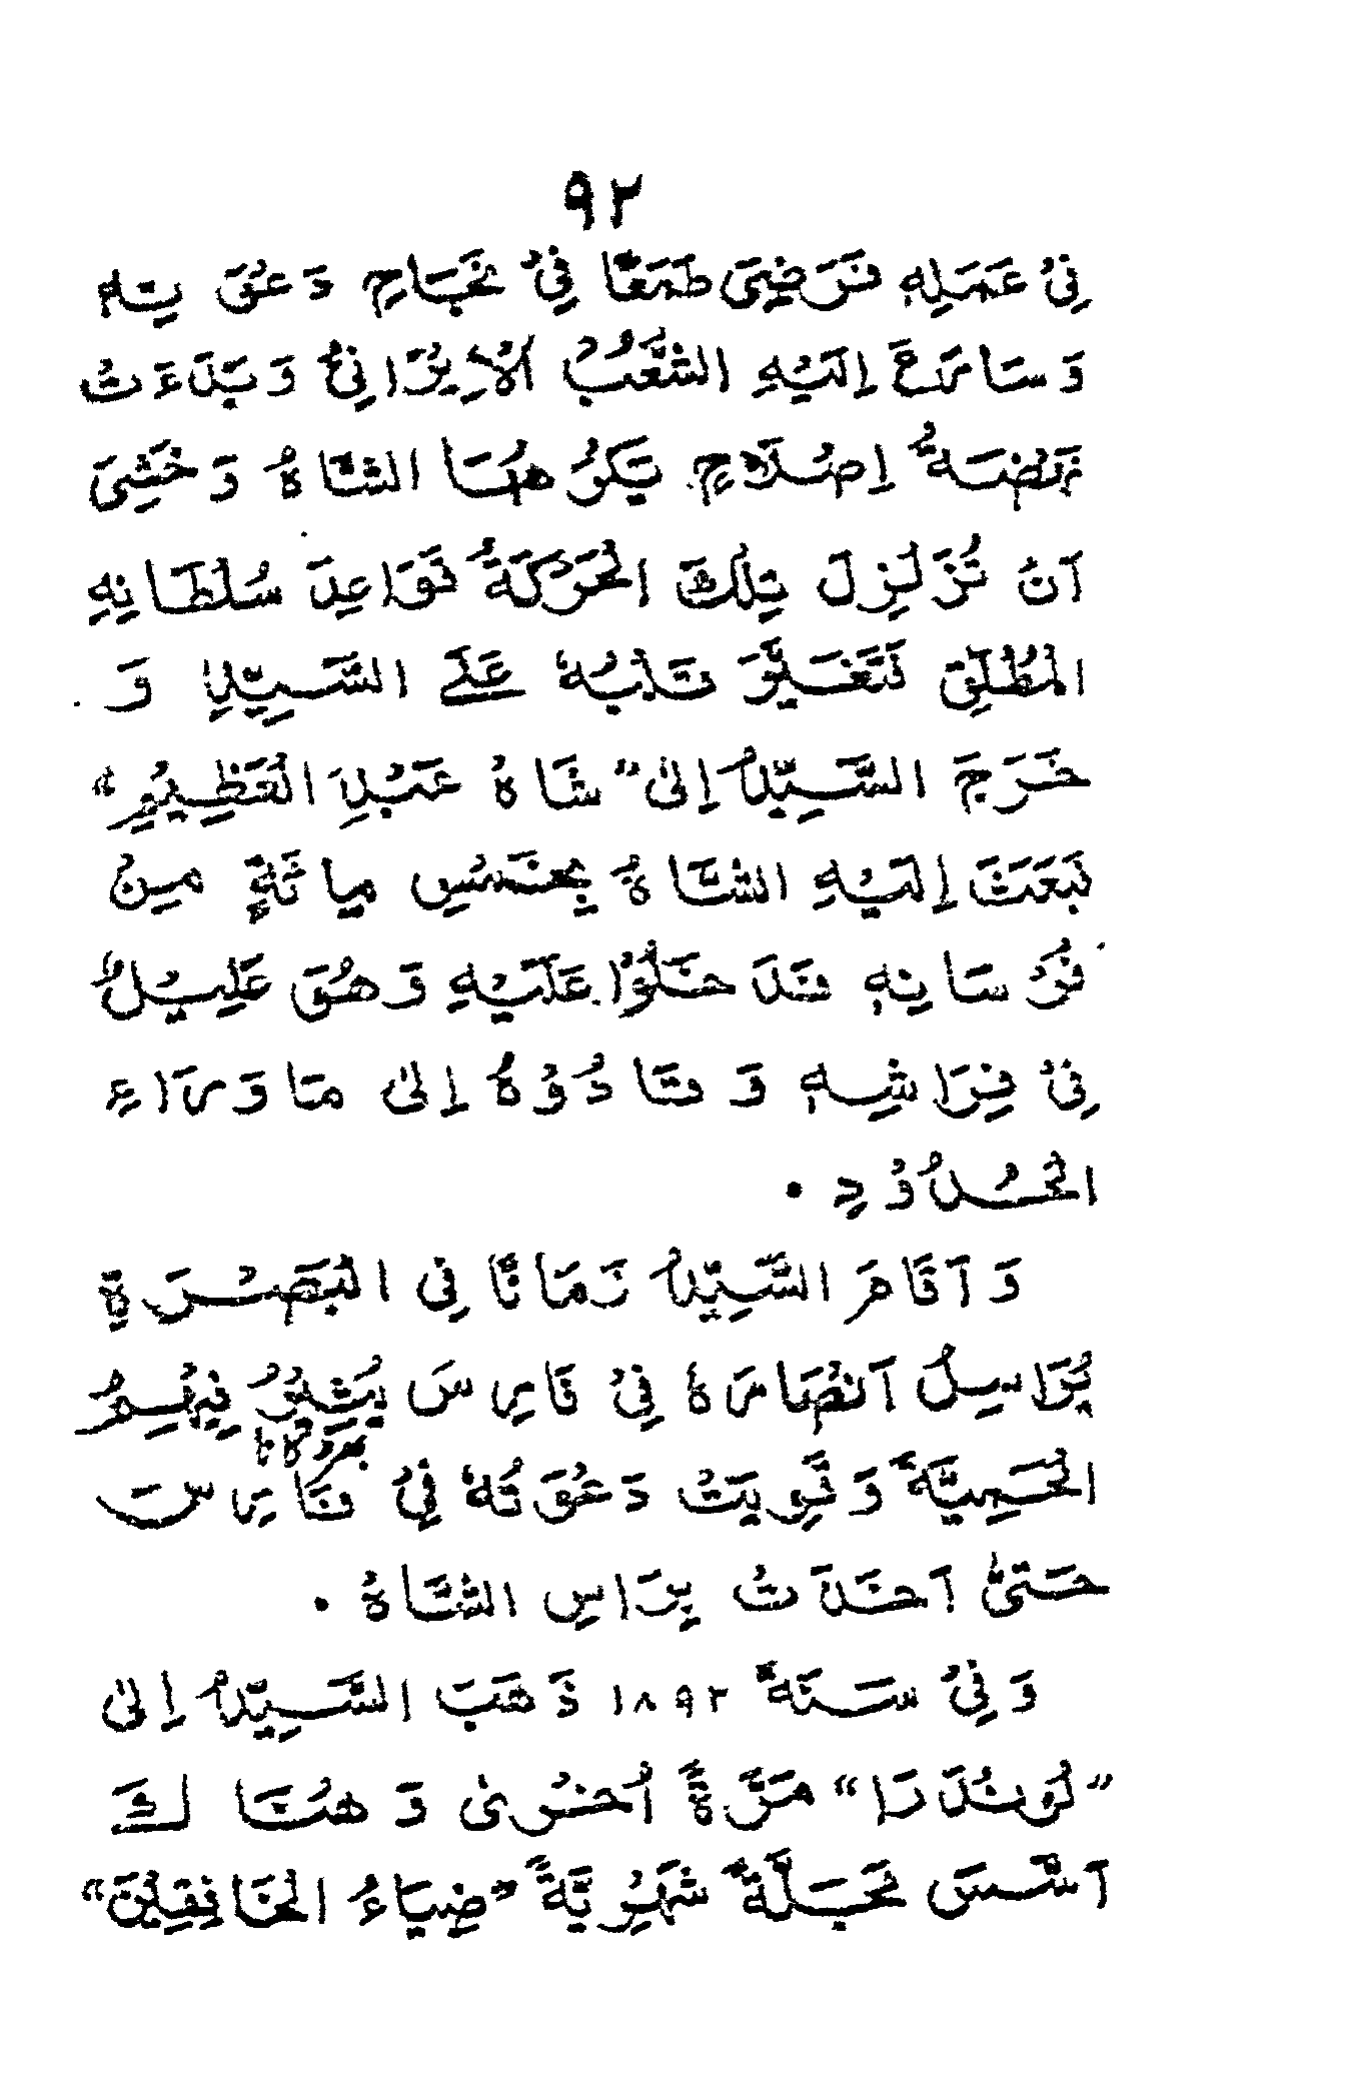 ٩٢
فِیْ عَمَلِهٖ فَرَضِیَ طَمَعًا فِیْ نَجَاحِ دَعْوَتِهٖ
وَسَارَعَ اِلَیْهِ الشَّعْبُ الْاِیْرَانِیُّ وَبَدَءَتْ
نَهْضَةُ اِصْلَاحٍ یَکْرَهُهَا الشَّاهُ وَخَشِیَ
اَنْ تُزَلْزِلَ تِلْكَ الْحَرَكَةُ قَوَاعِدَ سُلْطَانِهِ
الْمُطْلَقِ فَتَغَیَّرَ قَلْبُهٗ عَلَی السَّیِّدِ وَ
خَرَجَ السَّیِّدُ اِلٰی "شَاهْ عَبْدِ الْعَظِیْمِ"
فَبَعَثَ اِلَیْهِ الشَّاهُ بِخَمْسِ مِائَةٍ مِنْ
فُرْسَانِهٖ فَدَخَلُوْا عَلَیْهِ وَهُوَ عَلِیْلٌ
فِیْ فِرَاشِهٖ وَقَادُوْهُ اِلٰی مَاوَرَآءِ
الْحُدُوْدِ ۰
وَاَقَامَ السَّیِّدُ زَمَانًا فِی الْبَصْرَةِ
یُرَاسِلُ اَنْصَارَهٗ فِیْ فَارِسَ یُثِیْرُ فِیْهِمُ
الْحَمِیَّةَ وَقَوِیَتْ دَعْوَتُهٗ فِیْ فَارِسَ
حَتّٰی اَخَذَتْ بِرَاسِ الشَّاهْ ۰
وَفِیْ سَنَةِ ١٨٩٢ ذَهَبَ السَّیِّدُ اِلٰی
"لُوْنْدَرَا" مَرَّةً اُخْرٰی وَهُنَا لَكَ
اَسَّسَ مَجَلَّةً شَهْرِیَّةً "ضِیَاءُ الْخَافِقِیْنَ"